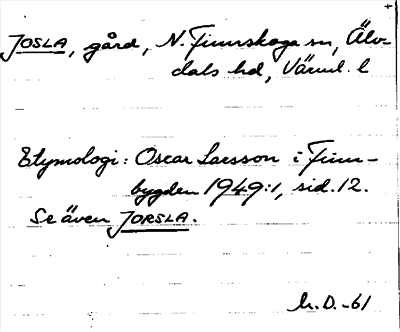 JOSLA, gård, N. Finnskoga sn, Älv-
dals hd, Värml. l
Etymologi: Oscar Larsson i Finn-
bygden 1949:1, sid. 12.
Se även JORSLA.
D.-61